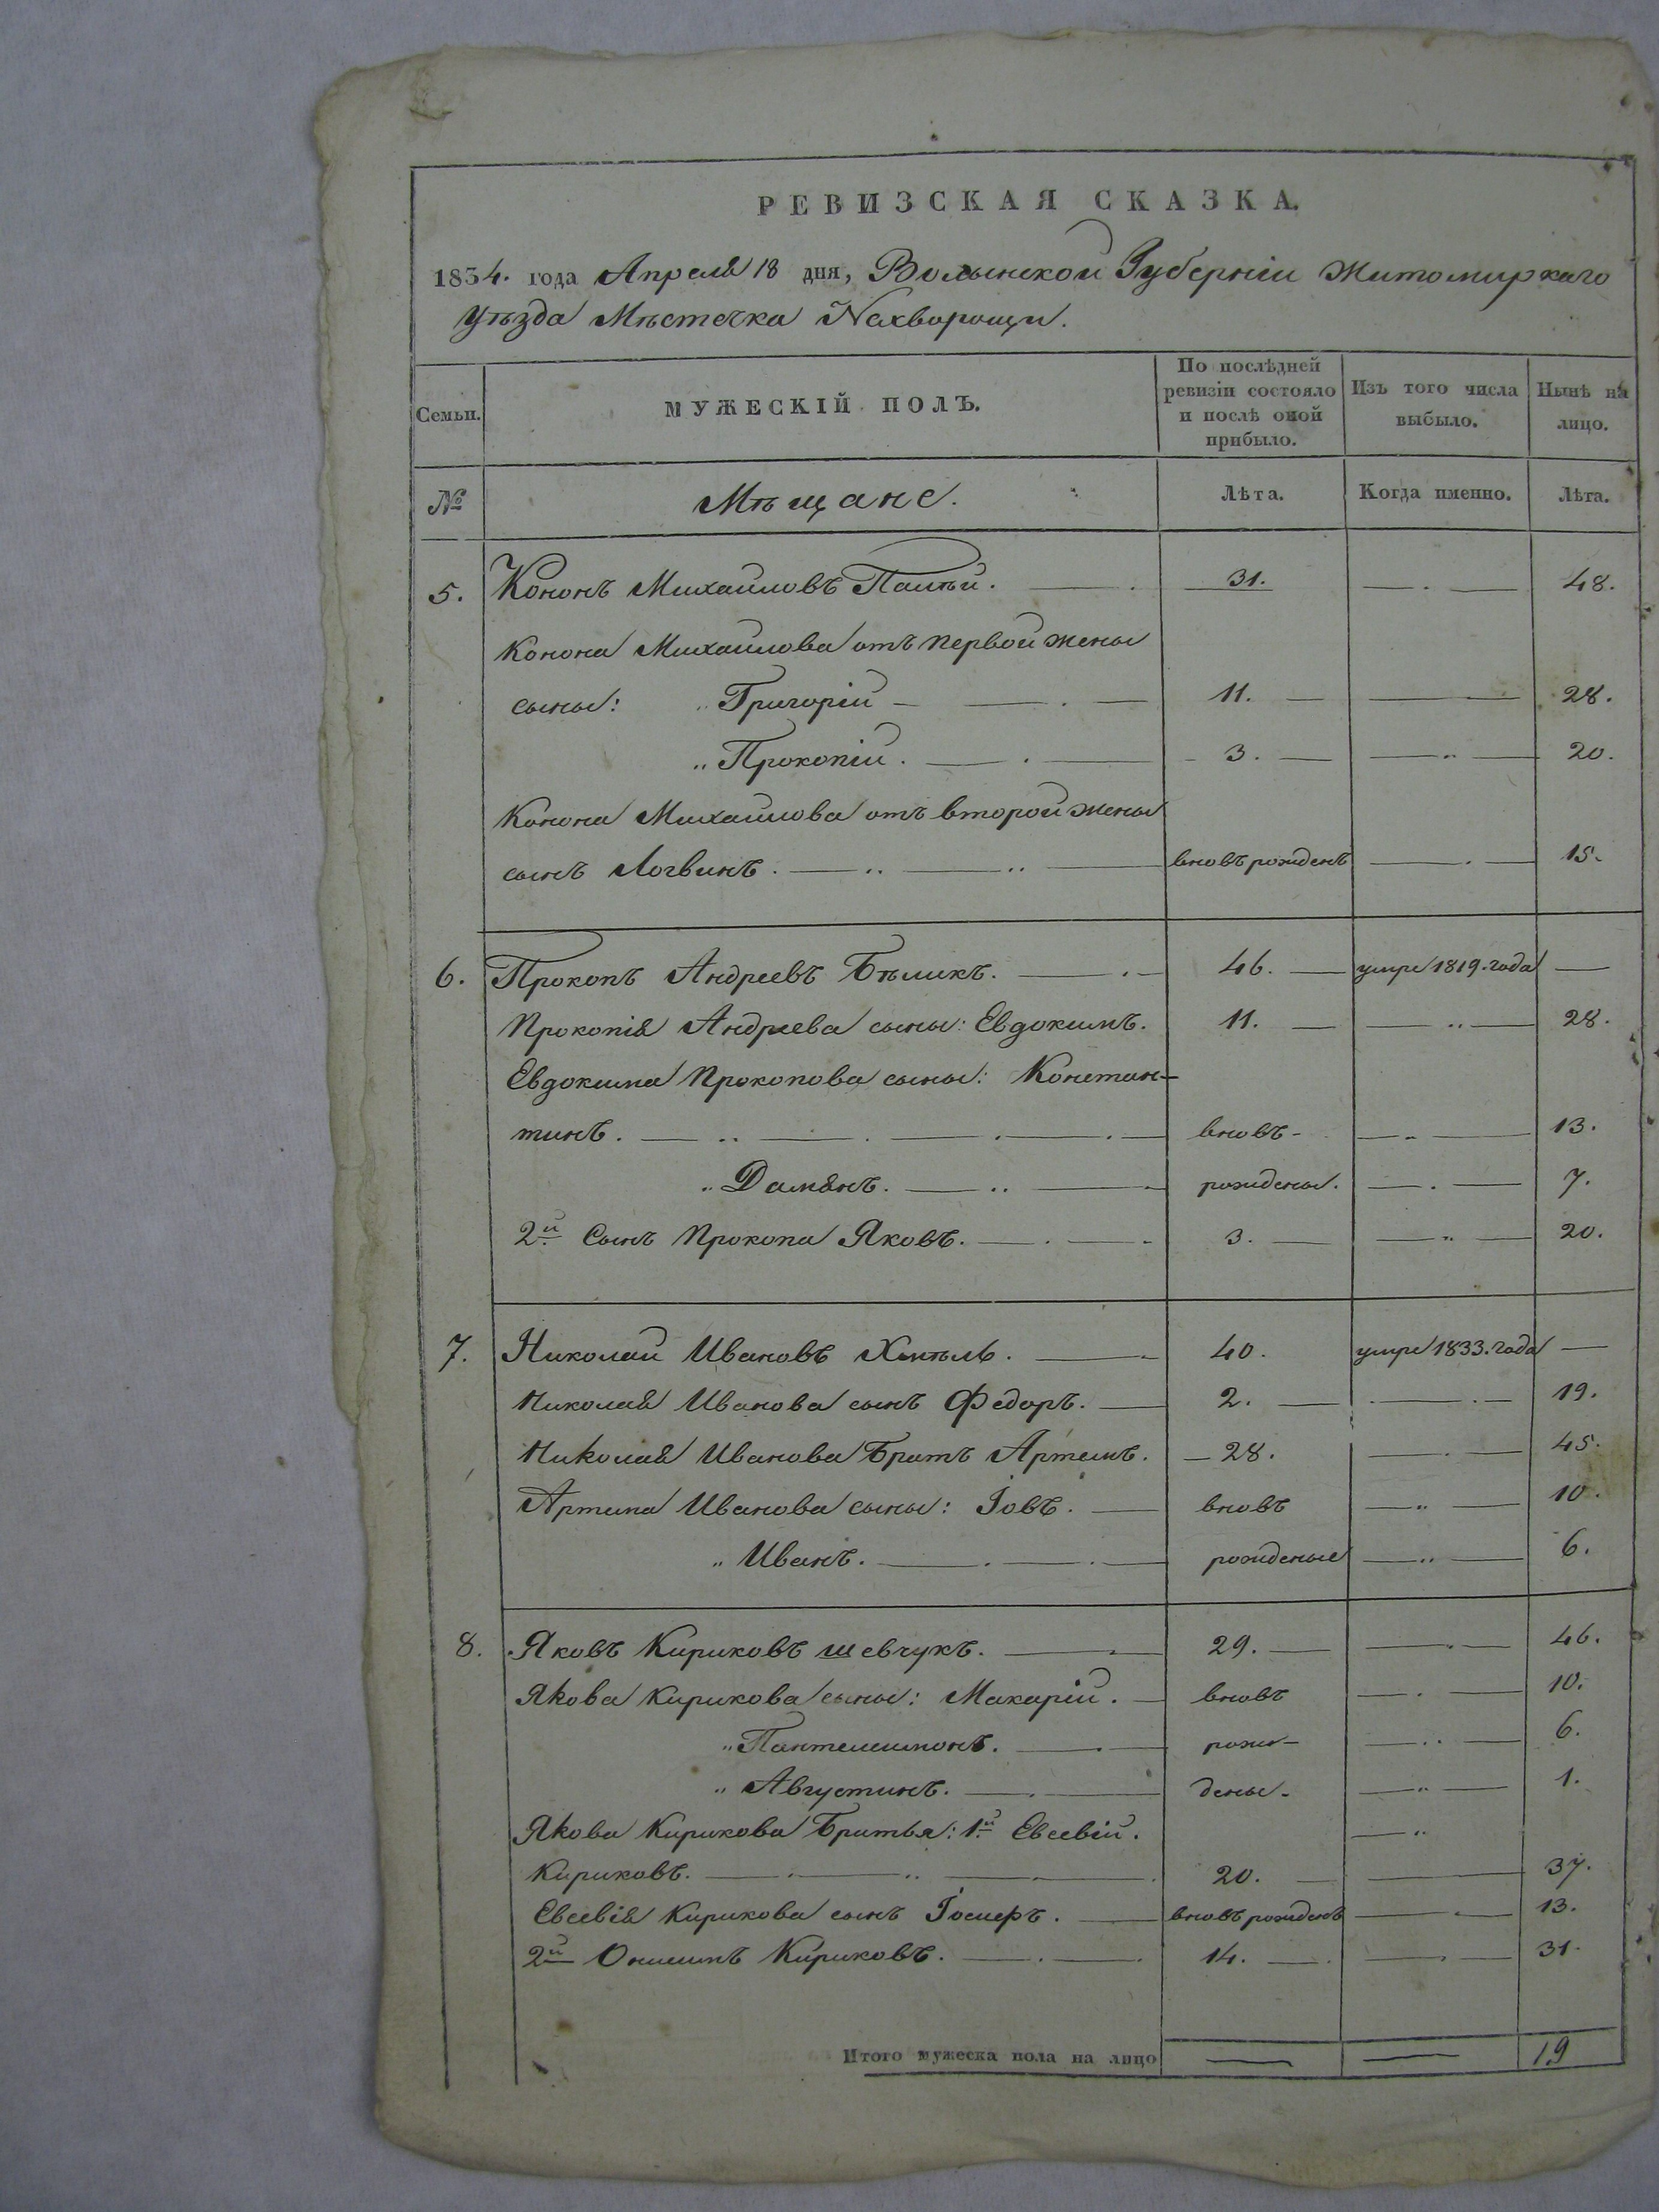 РЕВИЗСКАЯ СКАЗКА.
1834. года Апреля 18 дня, Волынской Губерніи Житомиркаго
Уѣзда Мѣстечка Нехворощи.
Семьи. МУЖЕСКІЙ ПОЛЪ. По послѣдней ревизіи состояло и послѣ оной прибыло. Изъ того числа выбыло. Нынѣ на лицо.
№ Мѣщане. Лѣта. Когда именно. Лѣта.
5. Кононъ Михайловъ Палѣй. 31. 48.
Конона Михайлова отъ первой жены
сыны: Григорій 11. 28.
„ Прокопій. 3. 20.
Конона Михайлова отъ второй жены
сынъ Логвинъ. вновь рожденъ 15.
6. Прокопъ Андреевъ Бѣликъ. 46. умре 1819. года
Прокопія Андреева сыны: Евдокимъ. 11. 28.
Евдокима Прокопова сыны: Констан-
тинъ. вновь- 13.
„ Дамянъ. рождены. 7.
2й Сынъ Прокопа Яковъ. 3. 20.
7. Николай Ивановъ Хмѣль. 40. умре 1833. года
Николая Иванова сынъ Федоръ. 2. 19.
Николая Иванова Братъ Артемъ. 28. 45.
Артема Иванова сыны: Іовъ. вновь 10.
„ Иванъ. рожденые 6.
8. Яковъ Кириковъ шевчукъ. 29. 46.
Якова Кирикова сыны: Макарій. вновь 10.
„ Пантелеимонъ. рож- 6.
„ Августинъ. дены. 1.
Якова Кирикова Братья: 1й Евсевій.
Кириковъ. 20. 37.
Евсевія Кирикова сынъ Іосифъ. вновь рожденъ 13.
2й Онисимъ Кириковъ. 14. 31.
Итого мужеска пола на лицо 19